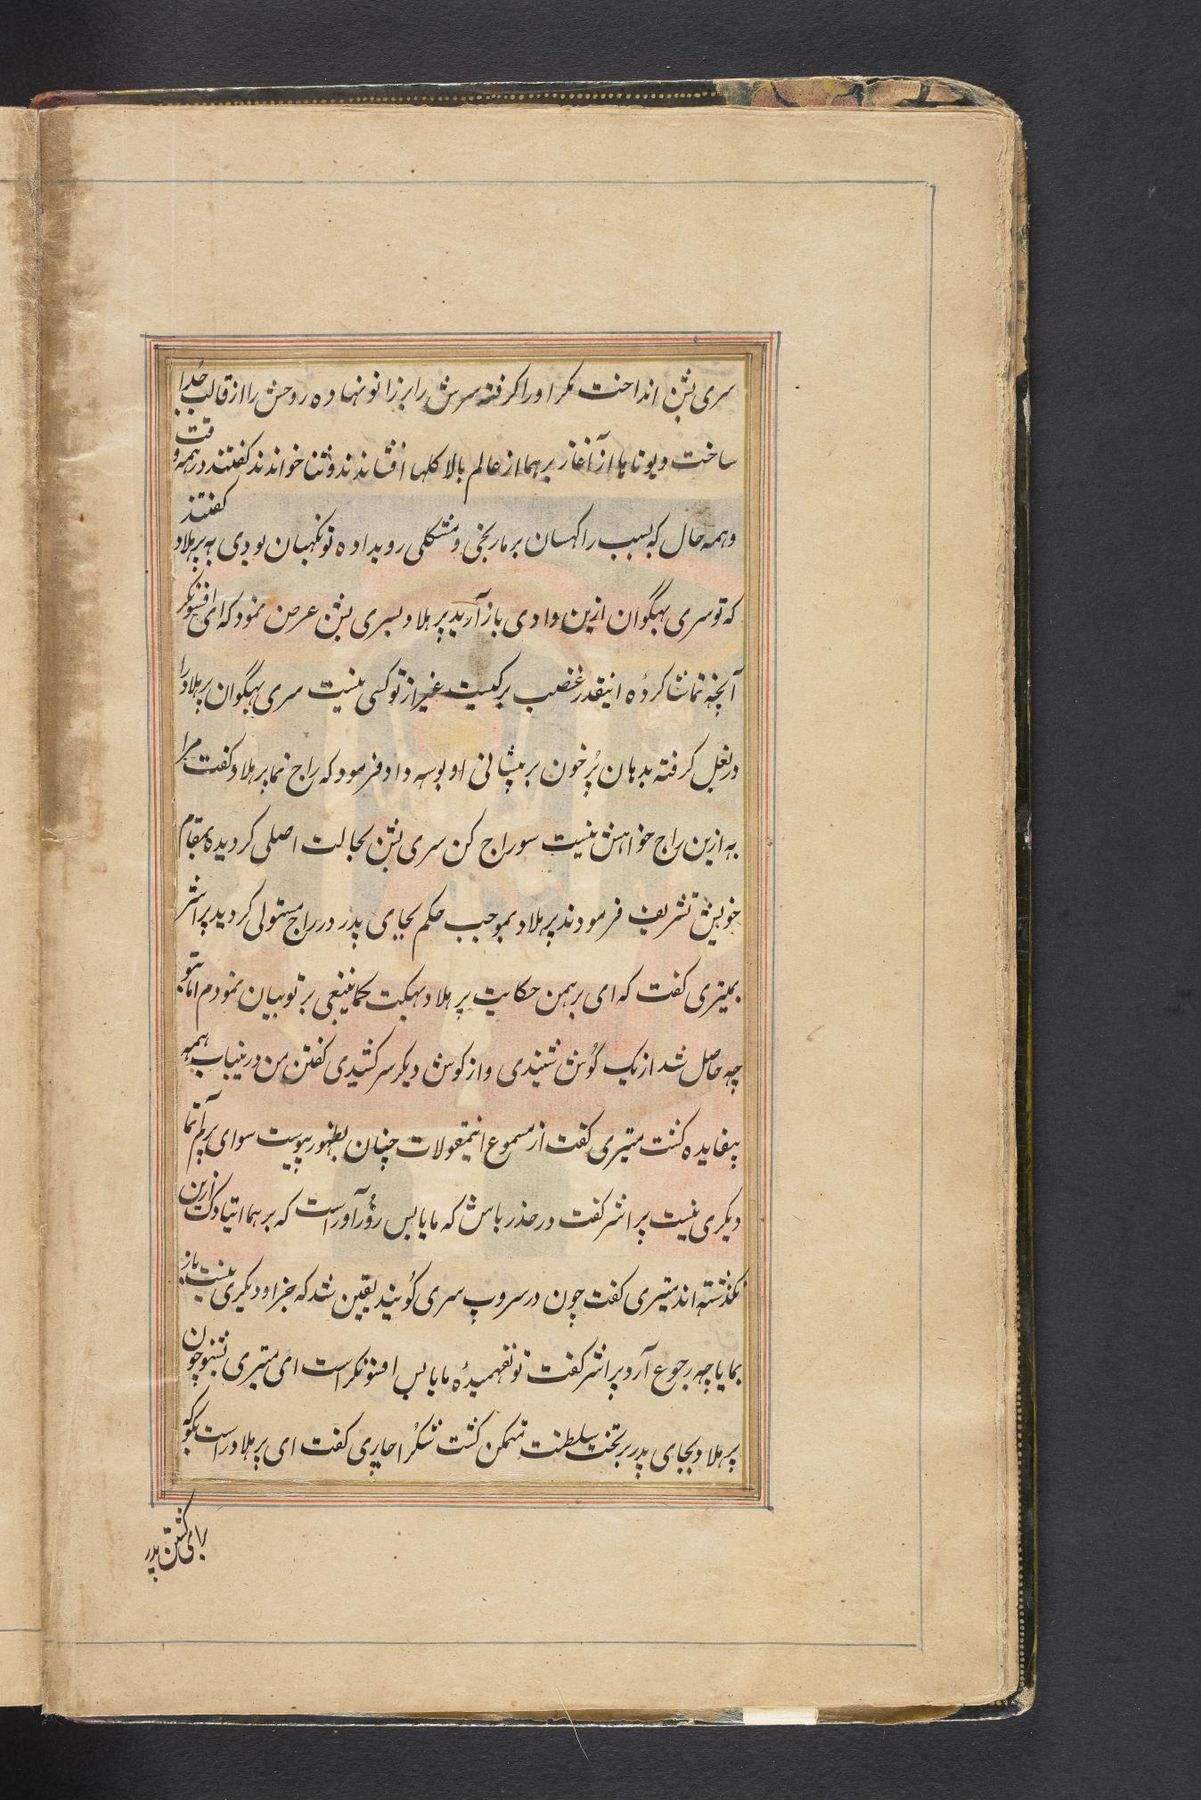 سری بشن انداخت مکر او را کرفته سرش را بر زانو نهاده روحش را از قالب جُدا
ساخت دیوتاها از آغاز برهما از عالم بالا کلها افشاندند و ثنا خواندند کفتند در همه وقت
و همه حال که بسبب راکهسان بر ما رنجی و مشکلی رو بداده تو نکهبان بودی به پرهلاد کفتند
که تو سری بهگوان ازین وادی باز آرید پرهلاد بسری بشن عرض نمود که ای افسونکر
آنچه تماشا کردهٔ اینقدر غضب بر کیست غیر از تو کسی نیست سری بهگوان پرهلاد را
در بغل کرفته بدهان پُر خون بر پیشانی او بوسه داد فرمود که راج نما پرهلاد کفت مرا
به ازین راج خواهش نیست سوراج کن سری بشن بحالت اصلی کردیده بمقام
خویش تشریف فرمودند پرهلاد بموجب حکم بجای پدر در راج مستولی کردید پراشر
بمیتری کفت که ای برهمن حکایت پرهلاد بهکت کماینبغی بر تو بیان نمودم اما بتو
چه حاصل شد از یک گوش شنیدی و از کوش دیکر سر کشیدی کفتن من درینباب همه
بیفایده کشت میتری کفت از مسموع اینمقولات چنان بظهور پیوست سوای پرماتما
دیکری نیست پراشر کفت در حذر باش که مایا بس زُور آور است که برهما اتیادک ازین
نکذشته اند میتری کفت چون در سروپ سری کُوبند یقین شد که جز او دیکری نیست باز
بمایا چه رجوع آرد پراشر کفت تو نفهمیدهٔ مایا بس افسونکر است ای میتری بشنو چون
پرهلاد بجای پدر بر تخت سلطنت متمکن کشت شکراچارج کفت ای پرهلاد راست بکو که
برای کشتن پدر